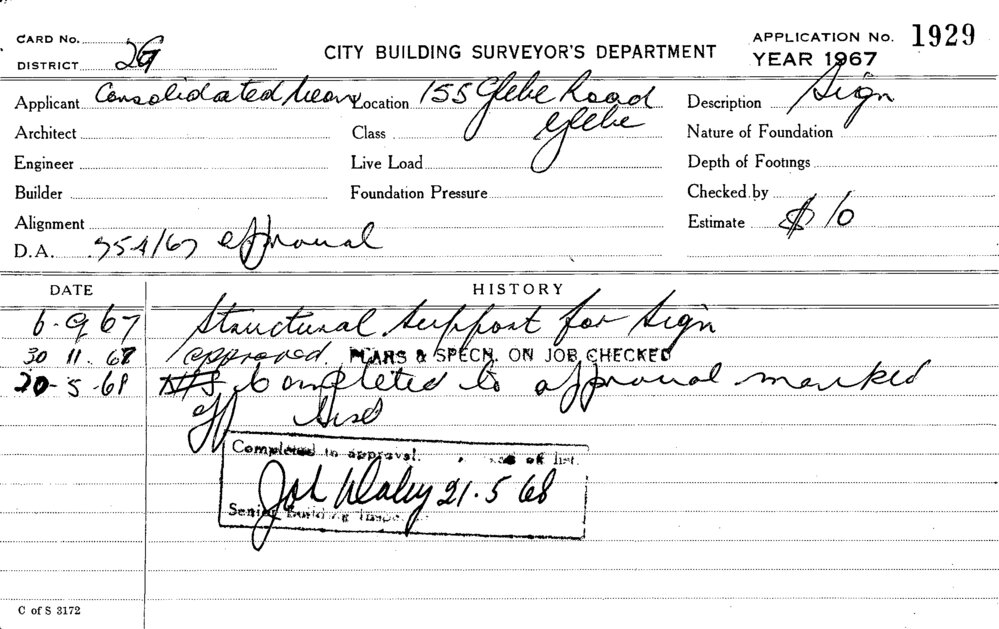 CARD No.
DISTRICT 2G
CITY BUILDING SURVEYOR'S DEPARTMENT
APPLICATION No. 1929
YEAR 1967
Applicant Consolidated Neon Location 155 Glebe Road Description Sign
Architect Class Glebe Nature of Foundation
Engineer Live Load Depth of Footings
Builder Foundation Pressure Checked by
Alignment Estimate $ 10
D.A. 954/67 approval
DATE HISTORY
6-9 67 Structural Support for Sign
30 11. 67 approved. PLANS & SPECN. ON JOB CHECKED
20-5-68 Completed to approval marked
off
Completed to approval. of list.
Daley 21.5 68
Senior Building Inspector
C of S 3172